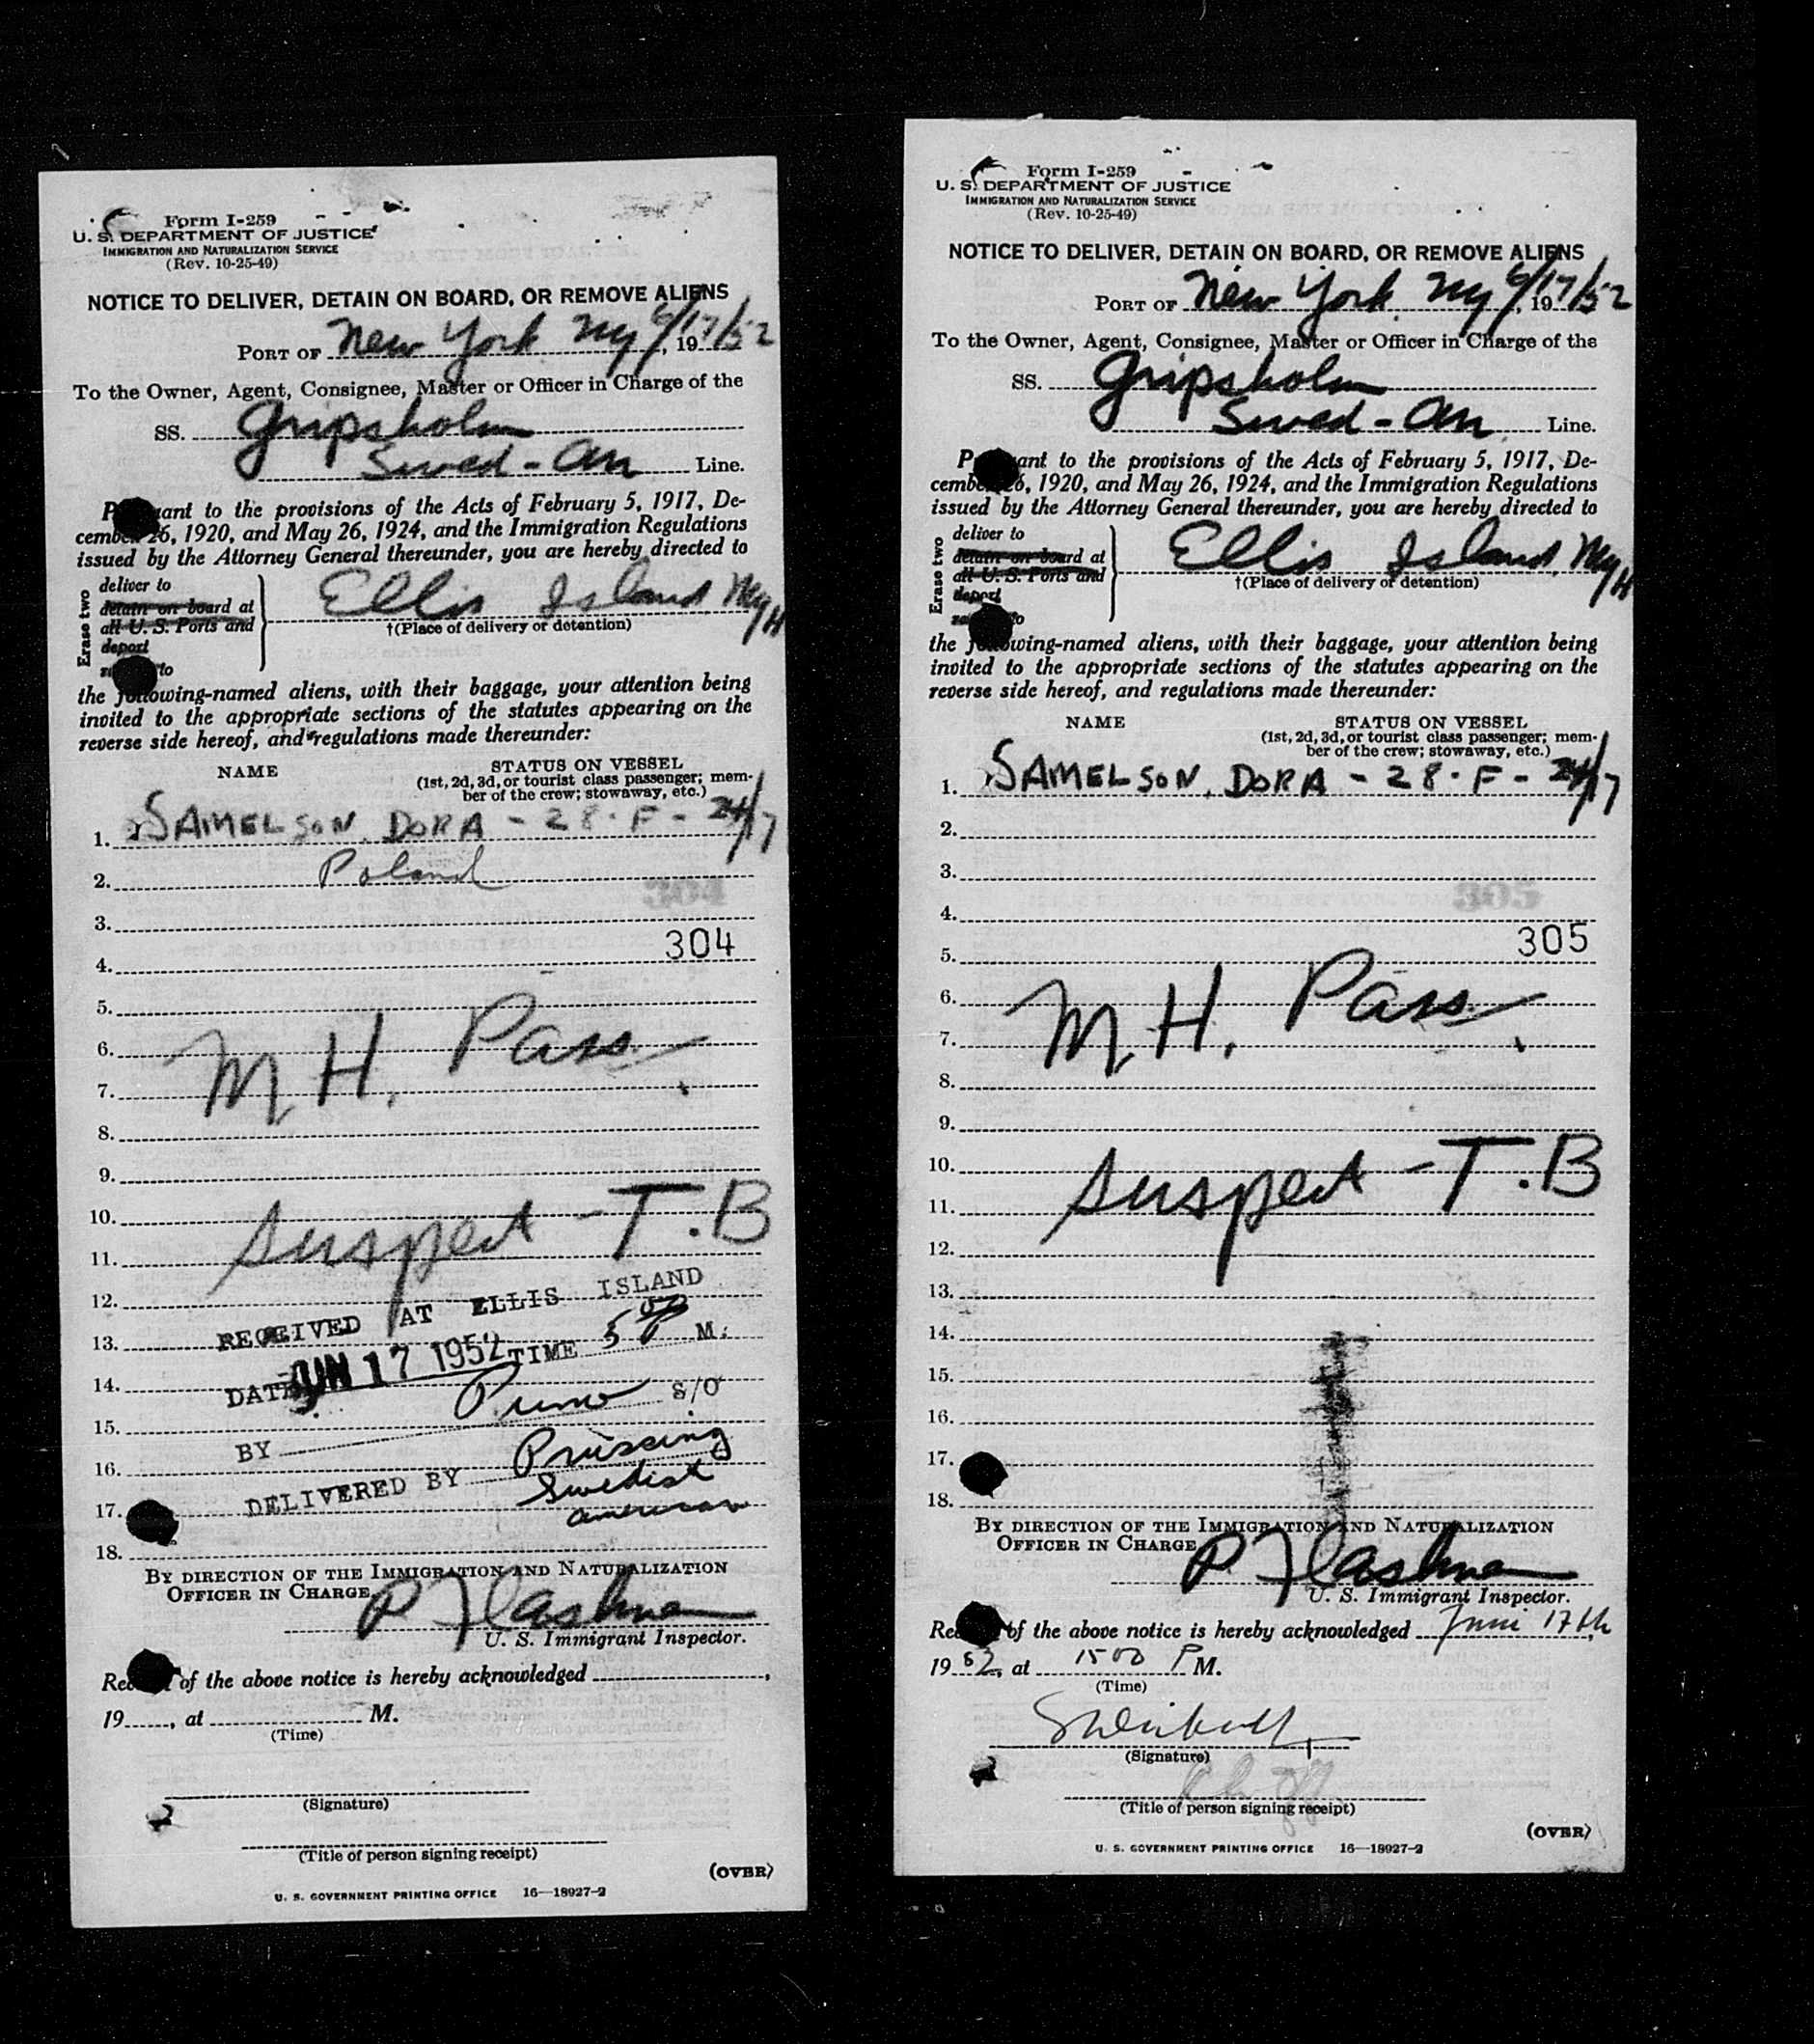 Form I-259
U. S. DEPARTMENT OF JUSTICE
IMMIGRATION AND NATURALIZATION SERVICE
(Rev. 10-25-49)
NOTICE TO DELIVER, DETAIN ON BOARD, OR REMOVE ALIENS
PORT OF New York Ny 6/17/52, 19
To the Owner, Agent, Consignee, Master or Officer in Charge of the
SS. Gripsholm
Swed - Am Line.
P uant to the provisions of the Acts of February 5, 1917, De-
cember 26, 1920, and May 26, 1924, and the Immigration Regulations
issued by the Attorney General thereunder, you are hereby directed to
Erase two
deliver to
detain on board at
all U. S. Ports and
deport
to
Ellis Island NyH
†(Place of delivery or detention)
the following-named aliens, with their baggage, your attention being
invited to the appropriate sections of the statutes appearing on the
reverse side hereof, and regulations made thereunder:
NAME
STATUS ON VESSEL
(1st, 2d, 3d, or tourist class passenger; mem-
ber of the crew; stowaway, etc.)
1. SAMELSON, DORA - 28 - F - 24/17
2. Poland
304
3.
304
4.
5.
6.
M.H. Pass.
7.
8.
9.
10.
Suspect - T.B
11.
12.
RECEIVED AT ELLIS ISLAND
13.
DATE JUN 17 1952 TIME 5 M.
14.
S/O
15.
BY
16.
DELIVERED BY Prissing
Swedish
American
17.
18.
BY DIRECTION OF THE IMMIGRATION AND NATURALIZATION
OFFICER IN CHARGE
P Flashner
U. S. Immigrant Inspector.
Rec of the above notice is hereby acknowledged ,
19 , at M.
(Time)
(Signature)
(Title of person signing receipt)
(OVER)
U. S. GOVERNMENT PRINTING OFFICE 16—18927-2
Form I-259
U. S. DEPARTMENT OF JUSTICE
IMMIGRATION AND NATURALIZATION SERVICE
(Rev. 10-25-49)
NOTICE TO DELIVER, DETAIN ON BOARD, OR REMOVE ALIENS
PORT OF New York Ny 6/17/52, 19
To the Owner, Agent, Consignee, Master or Officer in Charge of the
SS. Gripsholm
Swed - Am Line.
P ant to the provisions of the Acts of February 5, 1917, De-
cember 26, 1920, and May 26, 1924, and the Immigration Regulations
issued by the Attorney General thereunder, you are hereby directed to
Erase two
deliver to
detain on board at
all U. S. Ports and
deport
to
Ellis Island, NyH
†(Place of delivery or detention)
the following-named aliens, with their baggage, your attention being
invited to the appropriate sections of the statutes appearing on the
reverse side hereof, and regulations made thereunder:
NAME
STATUS ON VESSEL
(1st, 2d, 3d, or tourist class passenger; mem-
ber of the crew; stowaway, etc.)
1. SAMELSON, DORA - 28 - F - 24/17
2.
3.
305
4.
305
5.
6.
M.H. Pass.
7.
8.
9.
10.
Suspect - T.B
11.
12.
13.
14.
15.
16.
17.
18.
BY DIRECTION OF THE IMMIGRATION AND NATURALIZATION
OFFICER IN CHARGE
P Flashner
U. S. Immigrant Inspector.
Re of the above notice is hereby acknowledged Juni 17th,
19 52, at 1500 P M.
(Time)
(Signature)
(Title of person signing receipt)
(OVER)
U. S. GOVERNMENT PRINTING OFFICE 16—18927-2